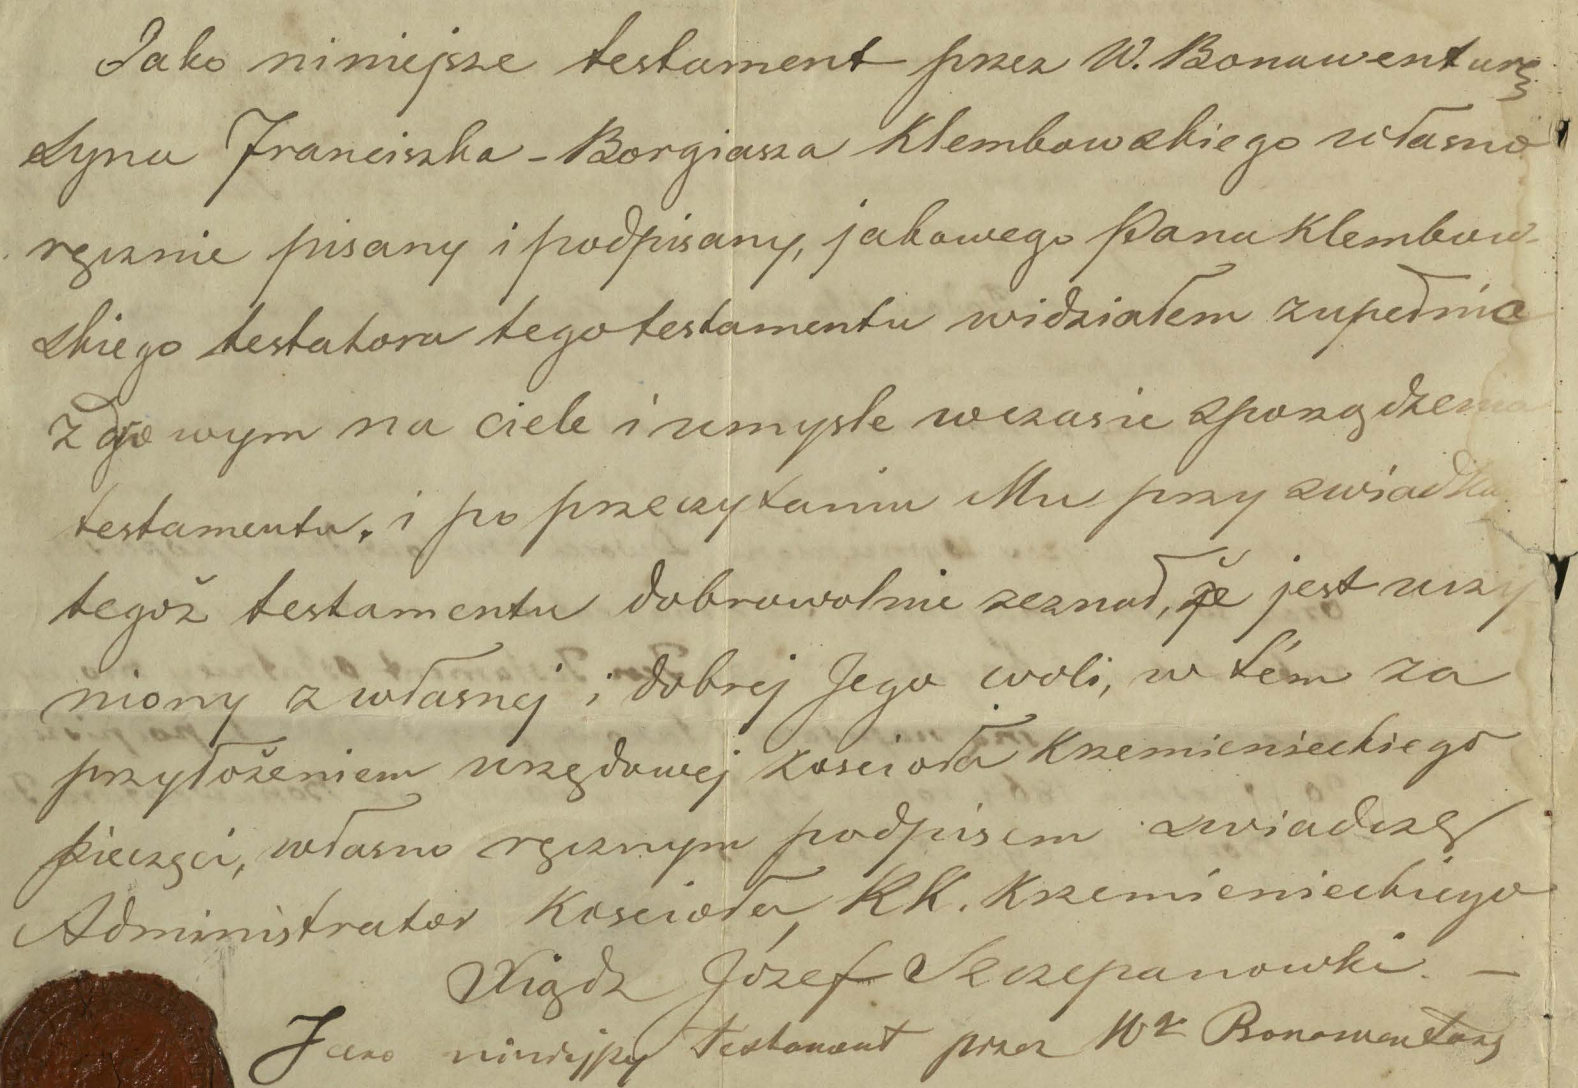 Jako niniejsze testament przez W. Bonawenturę
syna Franciszka-Borgiasza Klembowskiego własno
ręcznie pisany i podpisany, jakowego Pana Klembow-
skiego testatora tego testamentu widziałem zupełnie
zdrowym na ciele i umysle wczasie sporządzenia
testamentu, i po przeczytaniu Mu przy swiadku
tegoż testamentu dobrowolnie zeznał, że jest uczy
niony z własnej i dobrej Jego woli, w tém za
przyłożeniem urzędowej koscioła Krzemienieckiego
pieczęci, własno ręcznym podpisem swiadczę
Administrator Koscioła RK. Krzemienieckiego
Xiądz Józef Szczepanowki. —
Jako niniejszy testament przez Wº Bonawenturę